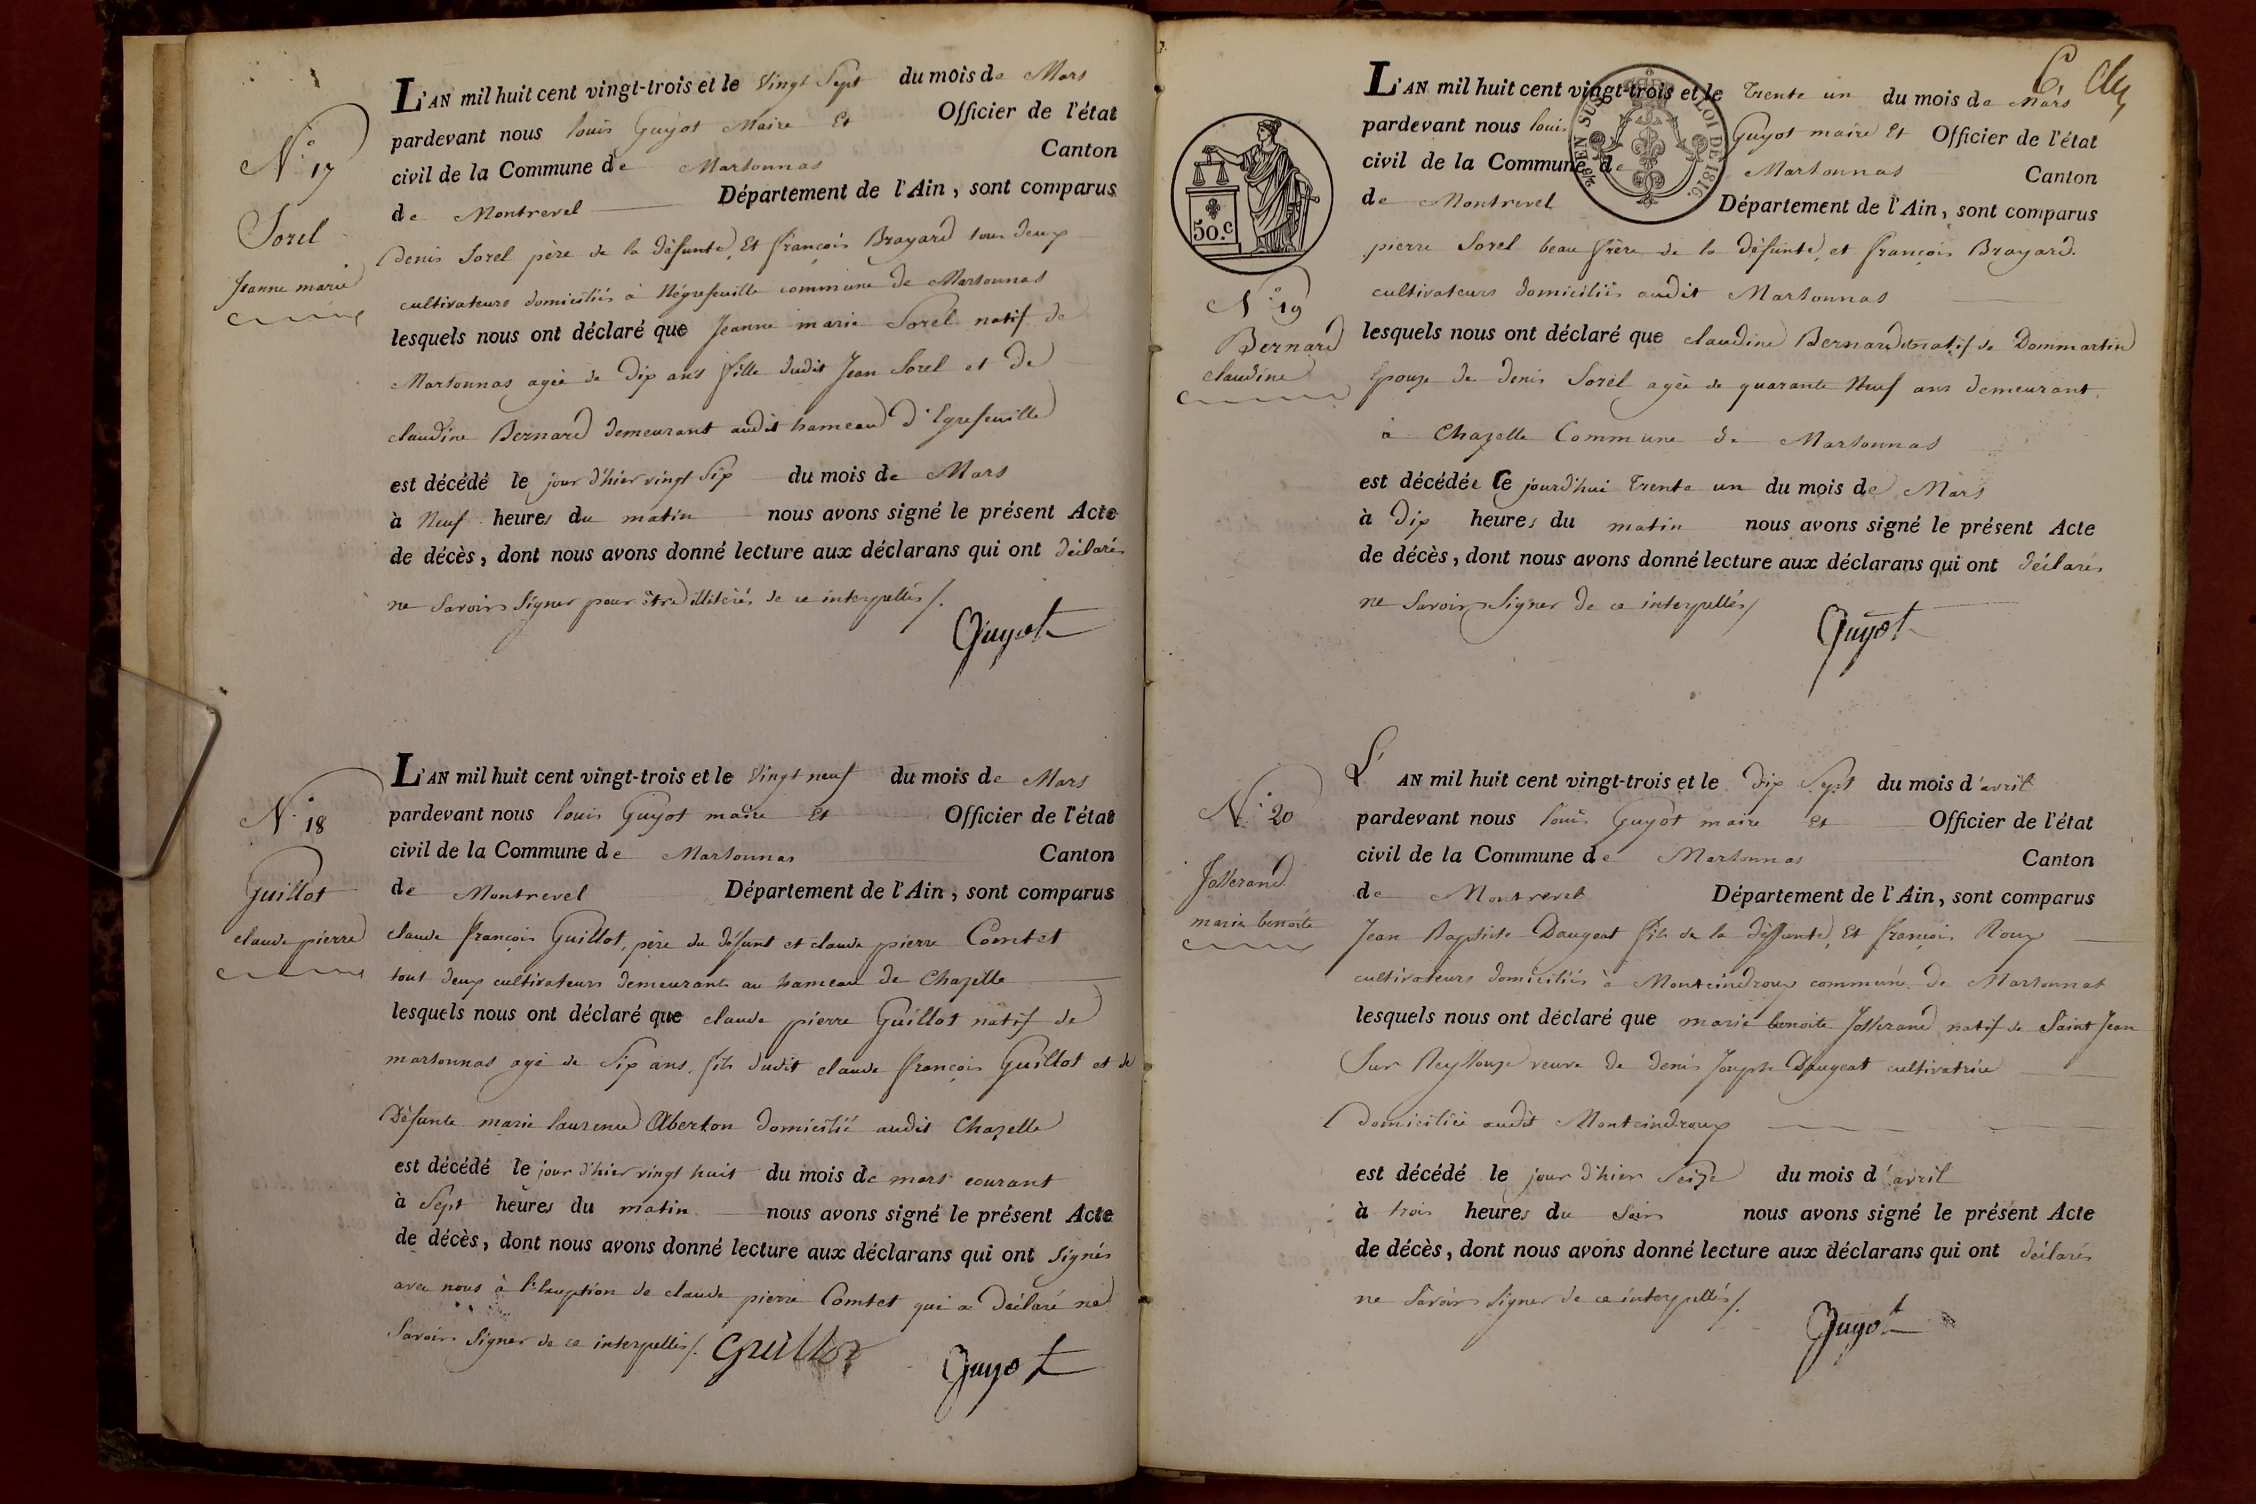 N.° 17
Sorel
Jeanne marie
L'AN mil huit cent vingt-trois et le vingt Sept du mois de Mars
pardevant nous louis Guyot Maire Et Officier de l'état
civil de la Commune de Marsonnas Canton
de Montrevel Département de l'Ain, sont comparus
Denis Sorel père de la défunte, Et françois Brayard tous deux
cultivateurs domiciliés à Négrefeuille commune de Marsonnas
lesquels nous ont déclaré que Jeanne marie Sorel natif de
Marsonnas agée de Dix ans fille dudit Jean Sorel et de
claudine Bernard demeurant audit hameau d'Egrefeuille
est décédé le jour d'hier vingt Six du mois de Mars
à Neuf heures du matin nous avons signé le présent Acte
de décès, dont nous avons donné lecture aux déclarans qui ont déclarés
ne Savoir Signer pour être illitérés de ce interpellés /.
Guyot
N.° 18
Guillot
claude pierre
L'AN mil huit cent vingt-trois et le vingt neuf du mois de Mars
pardevant nous louis Guyot maire Et Officier de l'état
civil de la Commune de Marsonnas Canton
de Montrevel Département de l'Ain, sont comparus
claude françois Guillot, père du défunt et claude pierre Comtet
tout deux cultivateurs demeurants au hameau de Chazelle
lesquels nous ont déclaré que claude pierre Guillot natif de
marsonnas agé de Six ans, fils dudit claude françois Guillot et de
Défunte marie laurence Aberton domicilié audit Chazelle
est décédé le jour d'hier vingt huit du mois de mars courant
à Sept heures du matin nous avons signé le présent Acte
de décès, dont nous avons donné lecture aux déclarans qui ont Signés
avec nous à l'Exception de claude pierre Comtet qui a Déclaré ne
Savoir Signer de ce interpellés /. Guillot
Guyot
EN SUS LOI DE 1816.
50.c
N.° 19
Bernard
claudine
L'AN mil huit cent vingt-trois et le Trente un du mois de Mars
pardevant nous louis Guyot maire Et Officier de l'état
civil de la Commune de Marsonnas Canton
de Montrevel Département de l'Ain, sont comparus
pierre Sorel beau frère de la défunte, et françois Brayard.
cultivateurs domiciliés audit Marsonnas
lesquels nous ont déclaré que claudine Bernard natif de Dommartin
Epouse de denis Sorel agée de quarante Neuf ans demeurant
à Chazelle Commune de Marsonnas
est décédée le jourd'hui Trente un du mois de Mars
à Dix heures du matin nous avons signé le présent Acte
de décès, dont nous avons donné lecture aux déclarans qui ont déclarés
ne Savoir Signer de ce interpellés /
Guyot
N.° 20
Josserand
marie benoite
L'AN mil huit cent vingt-trois et le dix Sept du mois d'avril
pardevant nous louis Guyot maire Et Officier de l'état
civil de la Commune de Marsonnas Canton
de Montrevel Département de l'Ain, sont comparus
Jean Baptiste Daugeat fils de la deffunte, Et françois Roux
cultivateurs domiciliés à Monteindroux commune de Marsonnas
lesquels nous ont déclaré que marie benoite Josserand natif de Saint Jean
Sur Reyssouze veuve de denis Joseph Daugeat cultivatrice
domiciliée audit Monteindroux
est décédé le jour d'hier Seize du mois d'avril
à trois heures du Soir nous avons signé le présent Acte
de décès, dont nous avons donné lecture aux déclarans qui ont déclarés
ne Savoir Signer de ce interpellés /.
Guyot